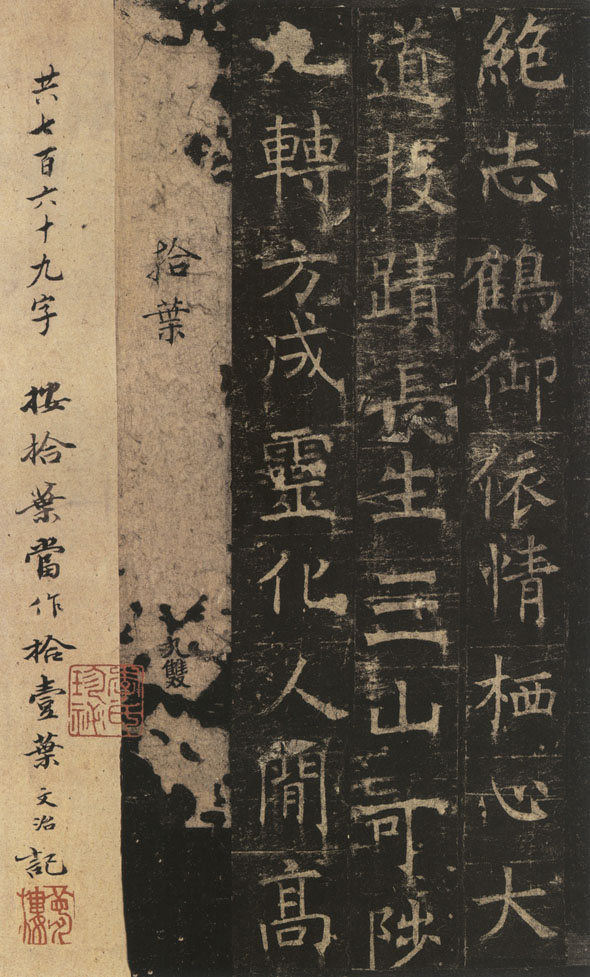 絶志鶴御依情栖心大
道投蹟長生三山可陟
九轉方成靈化人閒髙
拾葉
九雙
共七百六十九字 搂拾葉當作拾壹葉文治記
夢樓